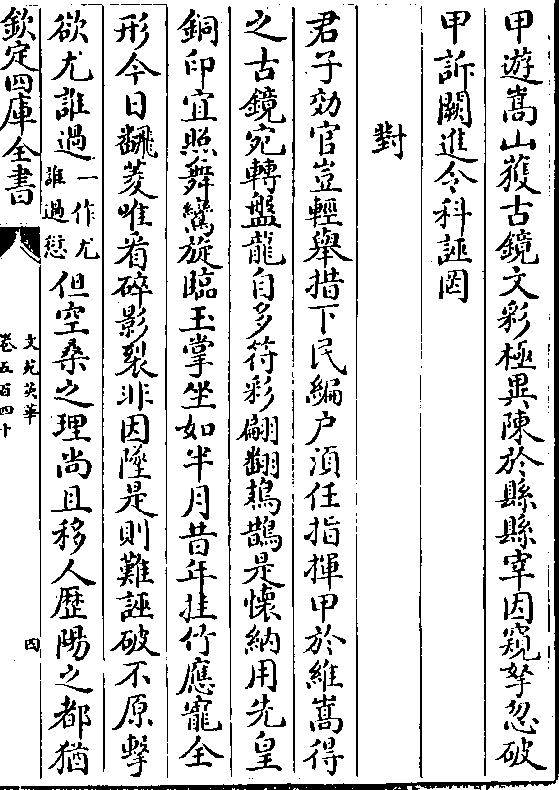 甲遊嵩山獲古鏡文彩極異陳於縣縣宰因窺拏忽破
甲訴闕進令科誣罔
對
君子効官豈輕舉措下民編户湏任指揮甲於維嵩得
之古鏡宛轉盤龍自多符彩翩翻鵲是懐納用先皇
銅印宜照舞鸞旋臨玉掌坐如半月昔年挂竹應窺全
形今日飜菱唯看碎影裂非因墜是則難誣破不原擊
欲尤誰過一作尤誰過愆但空桑之理尚且移人歴陽之都猶
欽定四庫全書
文苑英華
卷五百四十
四